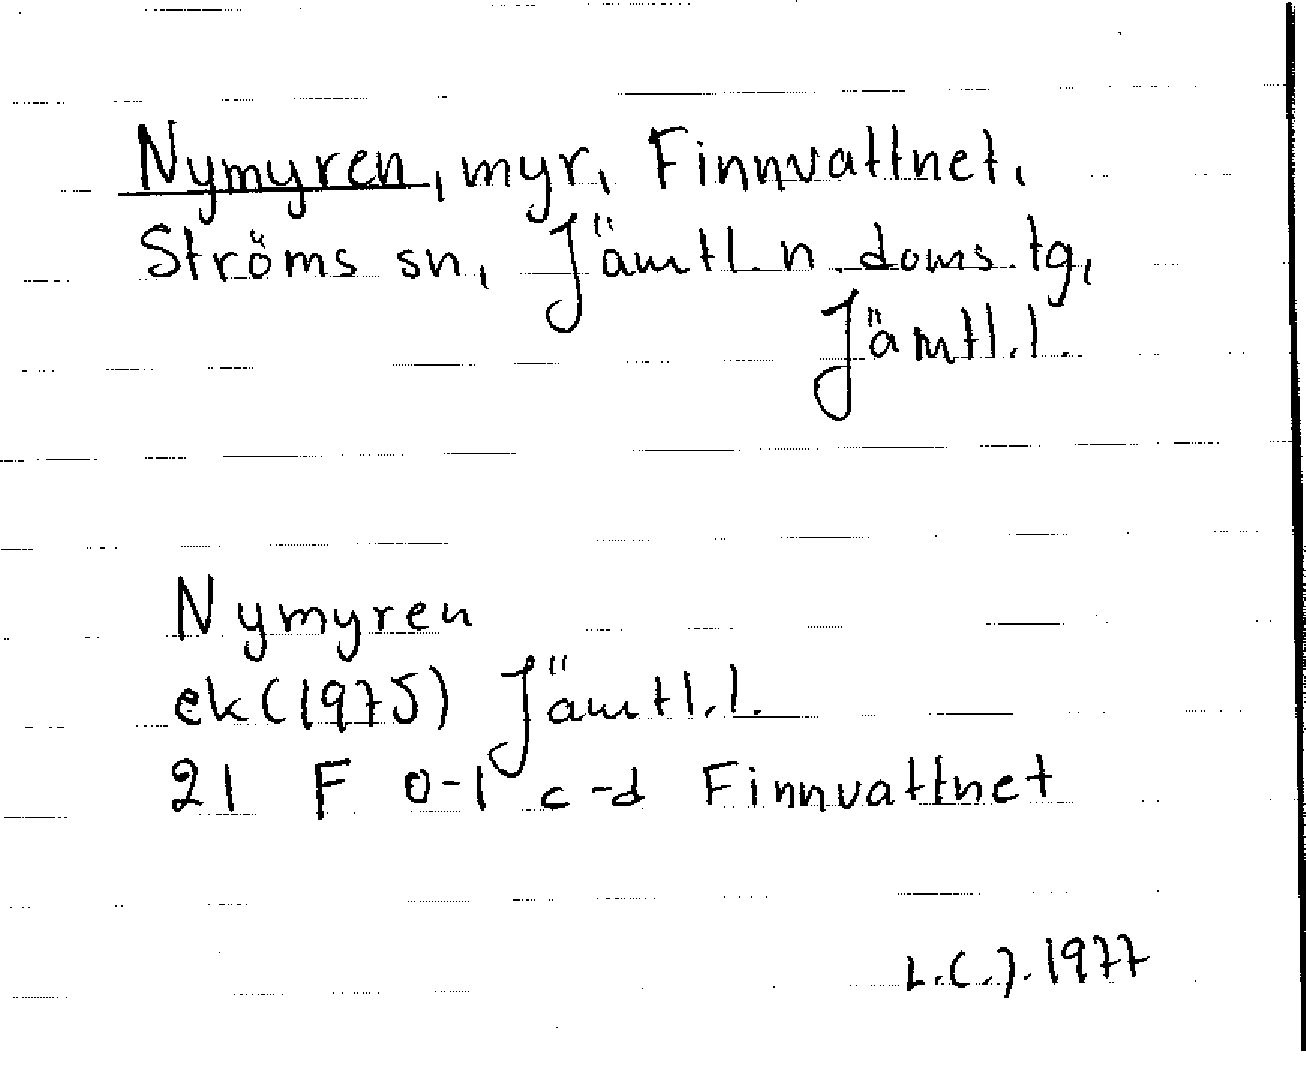 Nymyren, myr, Finnvattnet,
Ströms sn, Jämtl. n. doms. tg,
Jämtl. l.
Nymyren
ek (1975) Jämtl. l.
21 F 0-1 c-d Finnvattnet
L.C.J. 1977